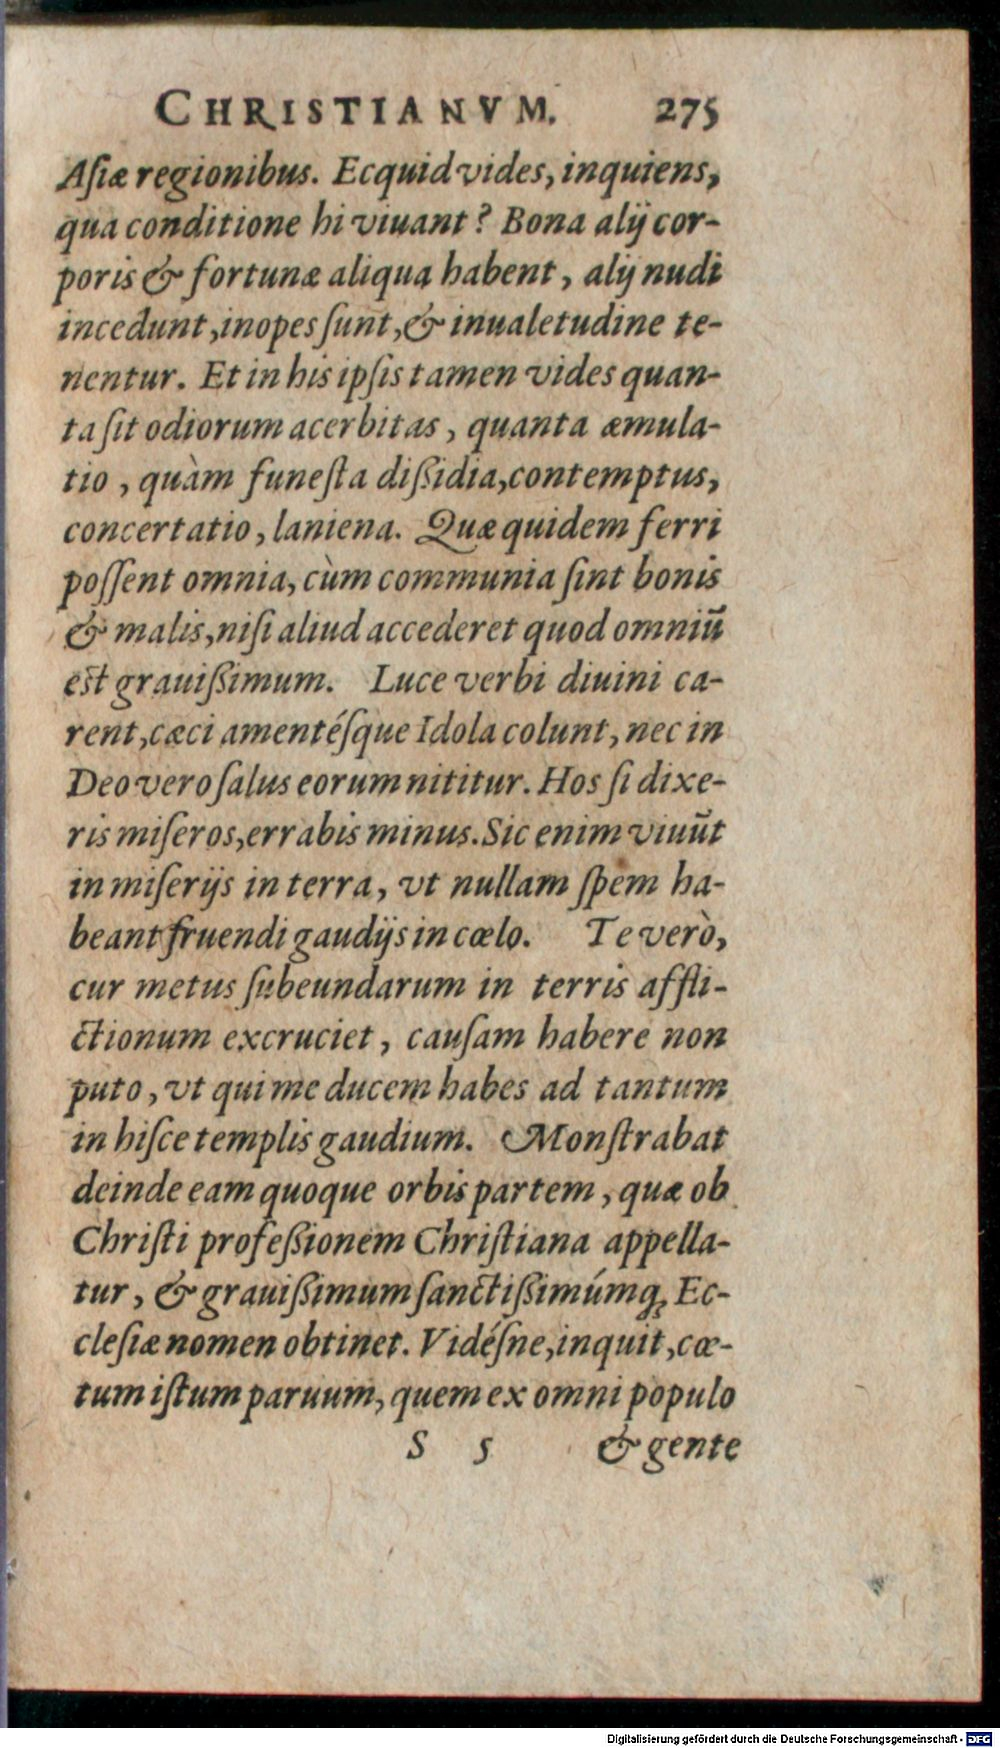 CHRISTIANVM. 275
Aſiæ regionibus. Ecquid vides, inquiens,
qua conditione hi viuant? Bona alij cor-
poris & fortunæ aliqua habent, alij nudi
incedunt, inopes ſunt, & inualetudine te-
nentur. Et in his ipſis tamen vides quan-
ta ſit odiorum acerbitas, quanta æmula-
tio, quàm funeſta dißidia, contemptus,
concertatio, laniena. Quæ quidem ferri
poſſent omnia, cùm communia ſint bonis
& malis, niſi aliud accederet quod omniū
est grauißimum. Luce verbi diuini ca-
rent, cæci amentéſque Idola colunt, nec in
Deo vero ſalus eorum nititur. Hos ſi dixe-
ris miſeros, errabis minus. Sic enim viuūt
in miſerijs in terra, vt nullam ſpem ha-
beant fruendi gaudijs in cœlo. Te verò,
cur metus ſubeundarum in terris affli-
ctionum excruciet, cauſam habere non
puto, vt qui me ducem habes ad tantum
in hiſce templis gaudium. Monſtrabat
deinde eam quoque orbis partem, quæ ob
Chriſti profeßionem Chriſtiana appella-
tur, & grauißimum ſanctißimúmq́ꝫ Ec-
cleſiæ nomen obtinet. Vidéſne, inquit, cœ-
tum iſtum paruum, quem ex omni populo
S 5 & gente
Digitalisierung gefördert durch die Deutsche Forschungsgemeinschaft - DFG